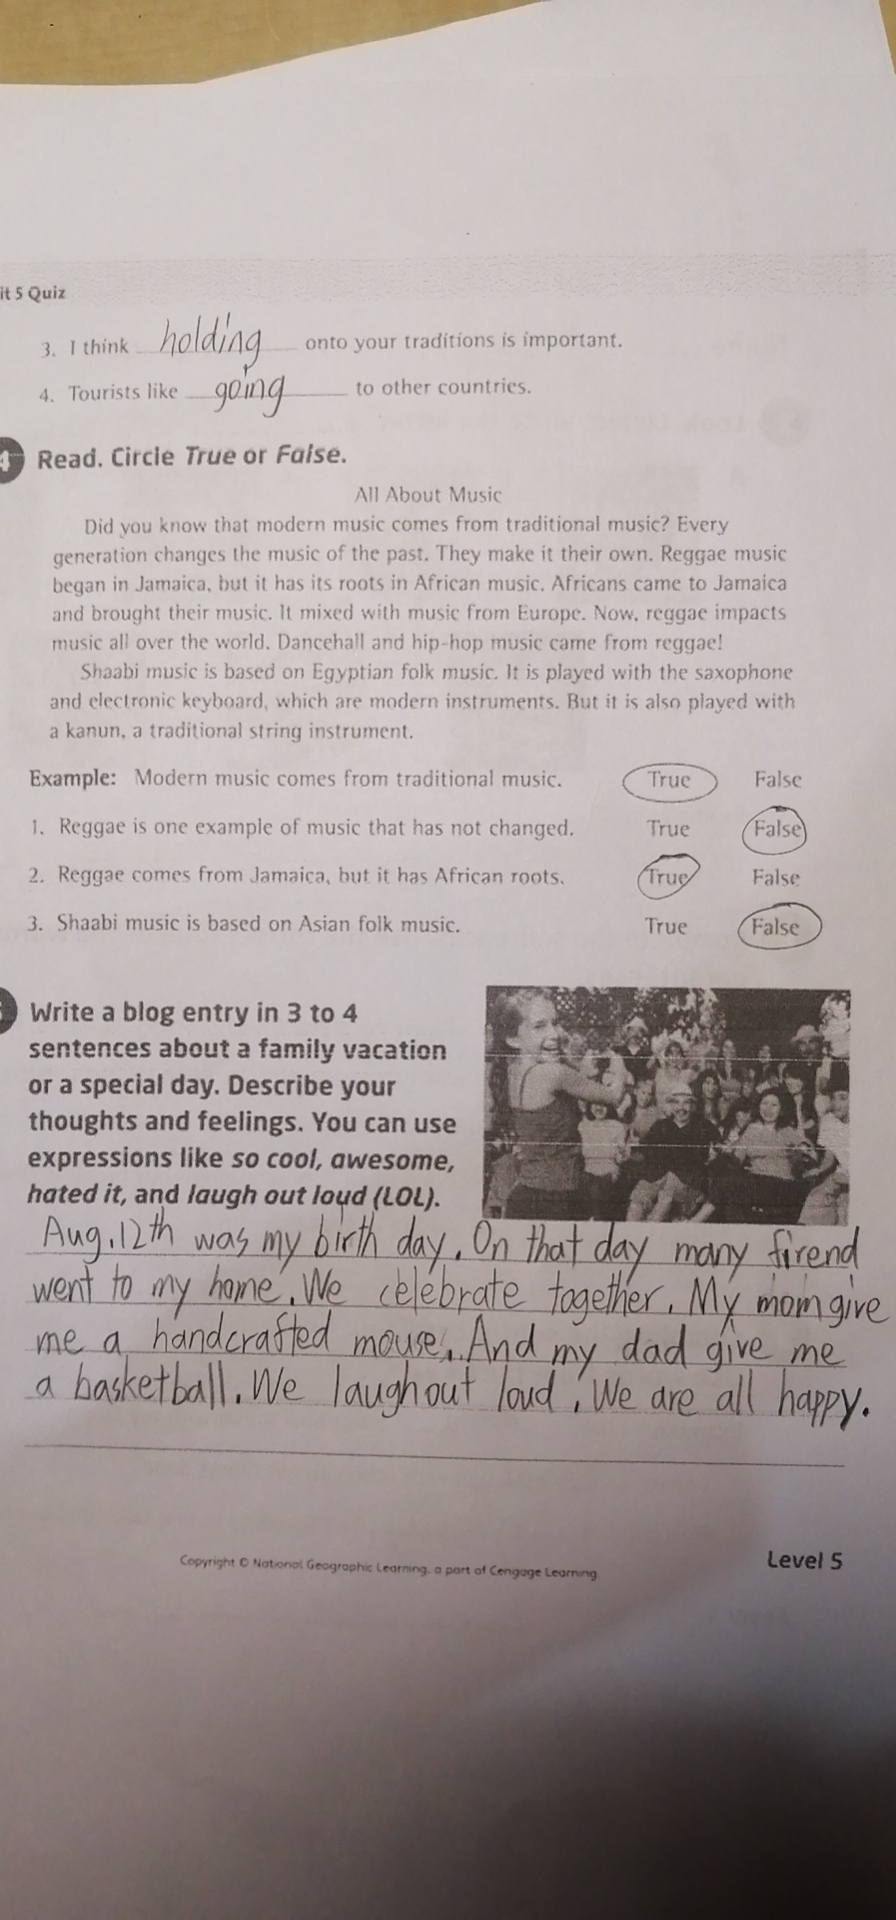 it 5 Quiz
3. I think holding onto your traditions is important.
4. Tourists like going to other countries.
4 Read. Circle True or False.
All About Music
Did you know that modern music comes from traditional music? Every
generation changes the music of the past. They make it their own. Reggae music
began in Jamaica, but it has its roots in African music. Africans came to Jamaica
and brought their music. It mixed with music from Europe. Now, reggae impacts
music all over the world. Dancehall and hip-hop music came from reggae!
Shaabi music is based on Egyptian folk music. It is played with the saxophone
and electronic keyboard, which are modern instruments. But it is also played with
a kanun, a traditional string instrument.
Example: Modern music comes from traditional music. True False
1. Reggae is one example of music that has not changed. True False
2. Reggae comes from Jamaica, but it has African roots. True False
3. Shaabi music is based on Asian folk music. True False
Write a blog entry in 3 to 4
sentences about a family vacation
or a special day. Describe your
thoughts and feelings. You can use
expressions like so cool, awesome,
hated it, and laugh out loud (LOL).
Aug.12th was my birth day. On that day many firend
went to my home. We celebrate together. My mom give
me a handcrafted mouse. And my dad give me
a basketball. We laugh out loud. We are all happy.
Copyright © National Geographic Learning, a part of Cengage Learning
Level 5